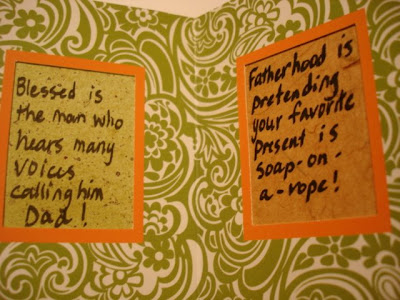 Blessed is
the man who
hears many
voices
calling him
Dad!
Fatherhood is
pretending
your favorite
present is
soap-on-
a-rope!